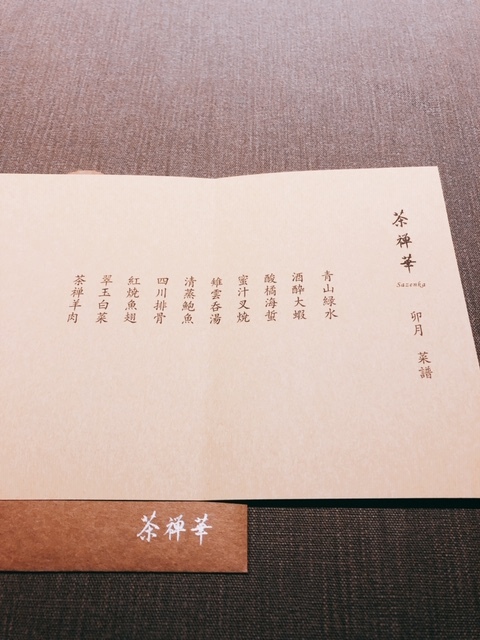 茶禅華
Sazenka
卯月 菜譜
青山緑水
酒酔大蝦
酸橘海蜇
蜜汁叉焼
雉雲呑湯
清蒸鮑魚
四川排骨
紅焼魚翅
翠玉白菜
茶禅羊肉
茶禅華